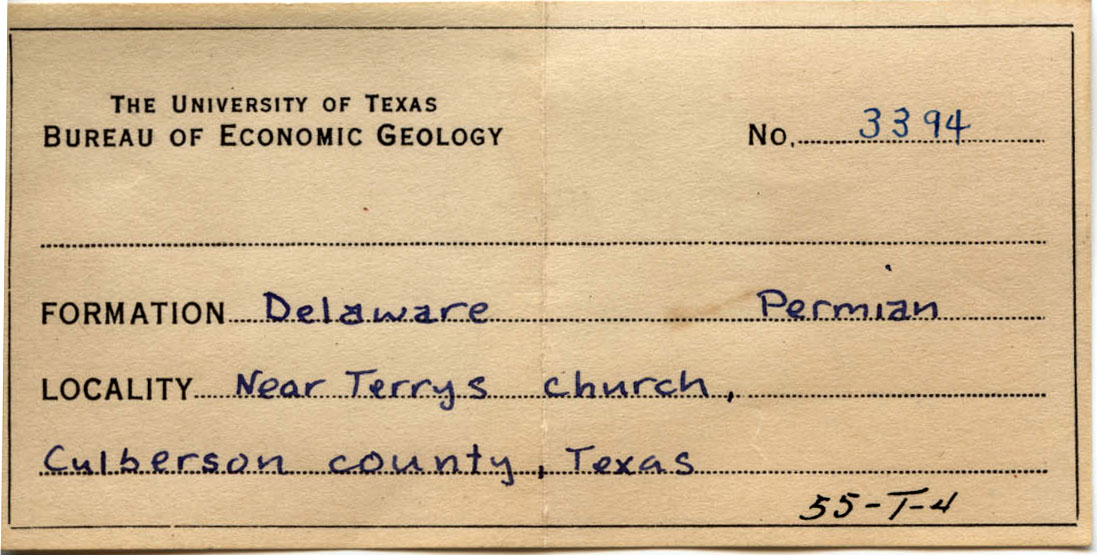 THE UNIVERSITY OF TEXAS
BUREAU OF ECONOMIC GEOLOGY
No. 3394
FORMATION Delaware Permian
LOCALITY Near Terrys church,
Culberson county, Texas
55-T-4